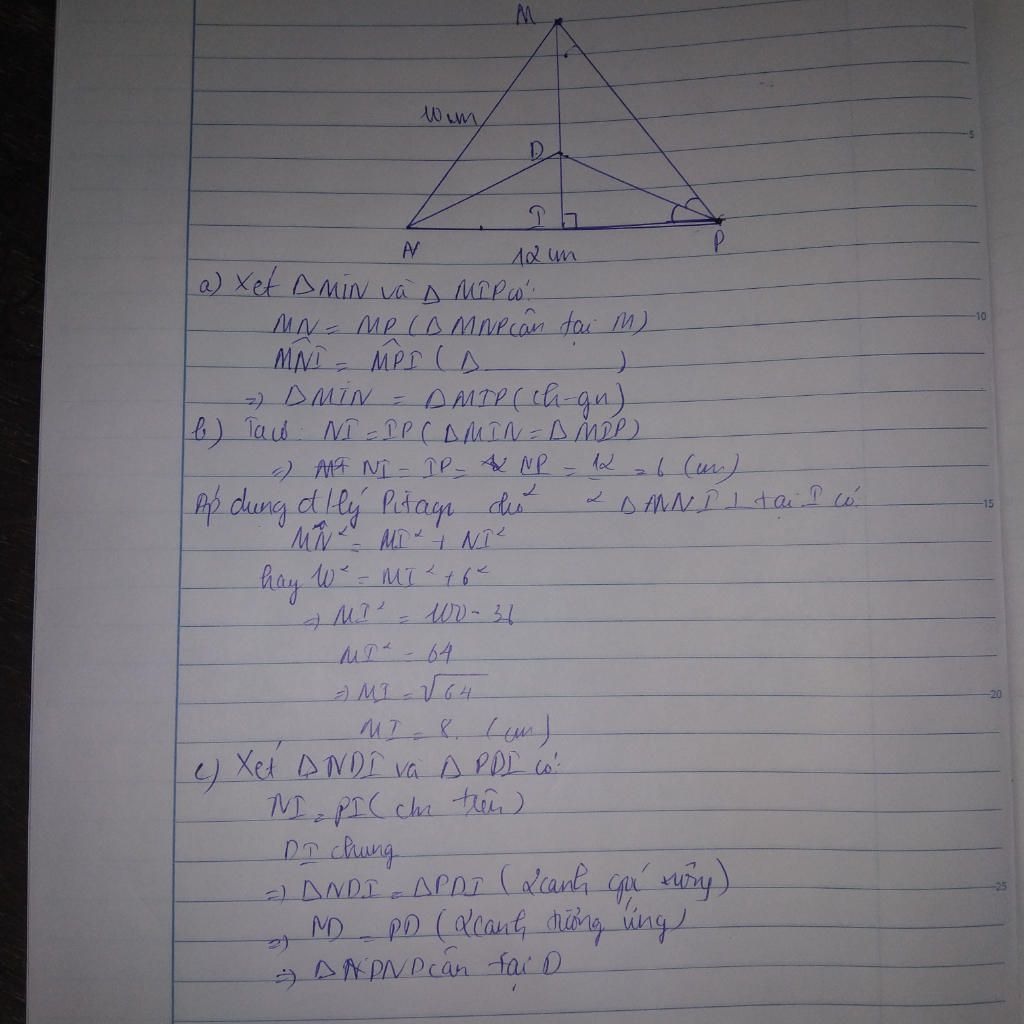 M
10 cm
D
I
N
P
12 cm
5
a) Xét ΔMIN và ΔMIP có:
10
MN = MP (ΔMNP cân tại M)
MN̂I = MP̂I (Δ )
=> ΔMIN = ΔMIP (ch-gn)
b) Ta có: NI = IP (ΔMIN = ΔMIP)
=> NI = IP = NP/2 = 12/2 = 6 (cm)
Áp dụng đ/lý Pitago cho ΔMNI ⊥ tại I có:
15
MN² = MI² + NI²
hay 10² = MI² + 6²
=> MI² = 100 - 36
MI² = 64
=> MI = √64
20
MI = 8. (cm)
c) Xét ΔNDI và ΔPDI có:
NI = PI (cm trên)
DI chung
=> ΔNDI = ΔPDI (2 cạnh góc vuông)
25
=> ND = PD (2 cạnh tương ứng)
=> ΔNDP cân tại D